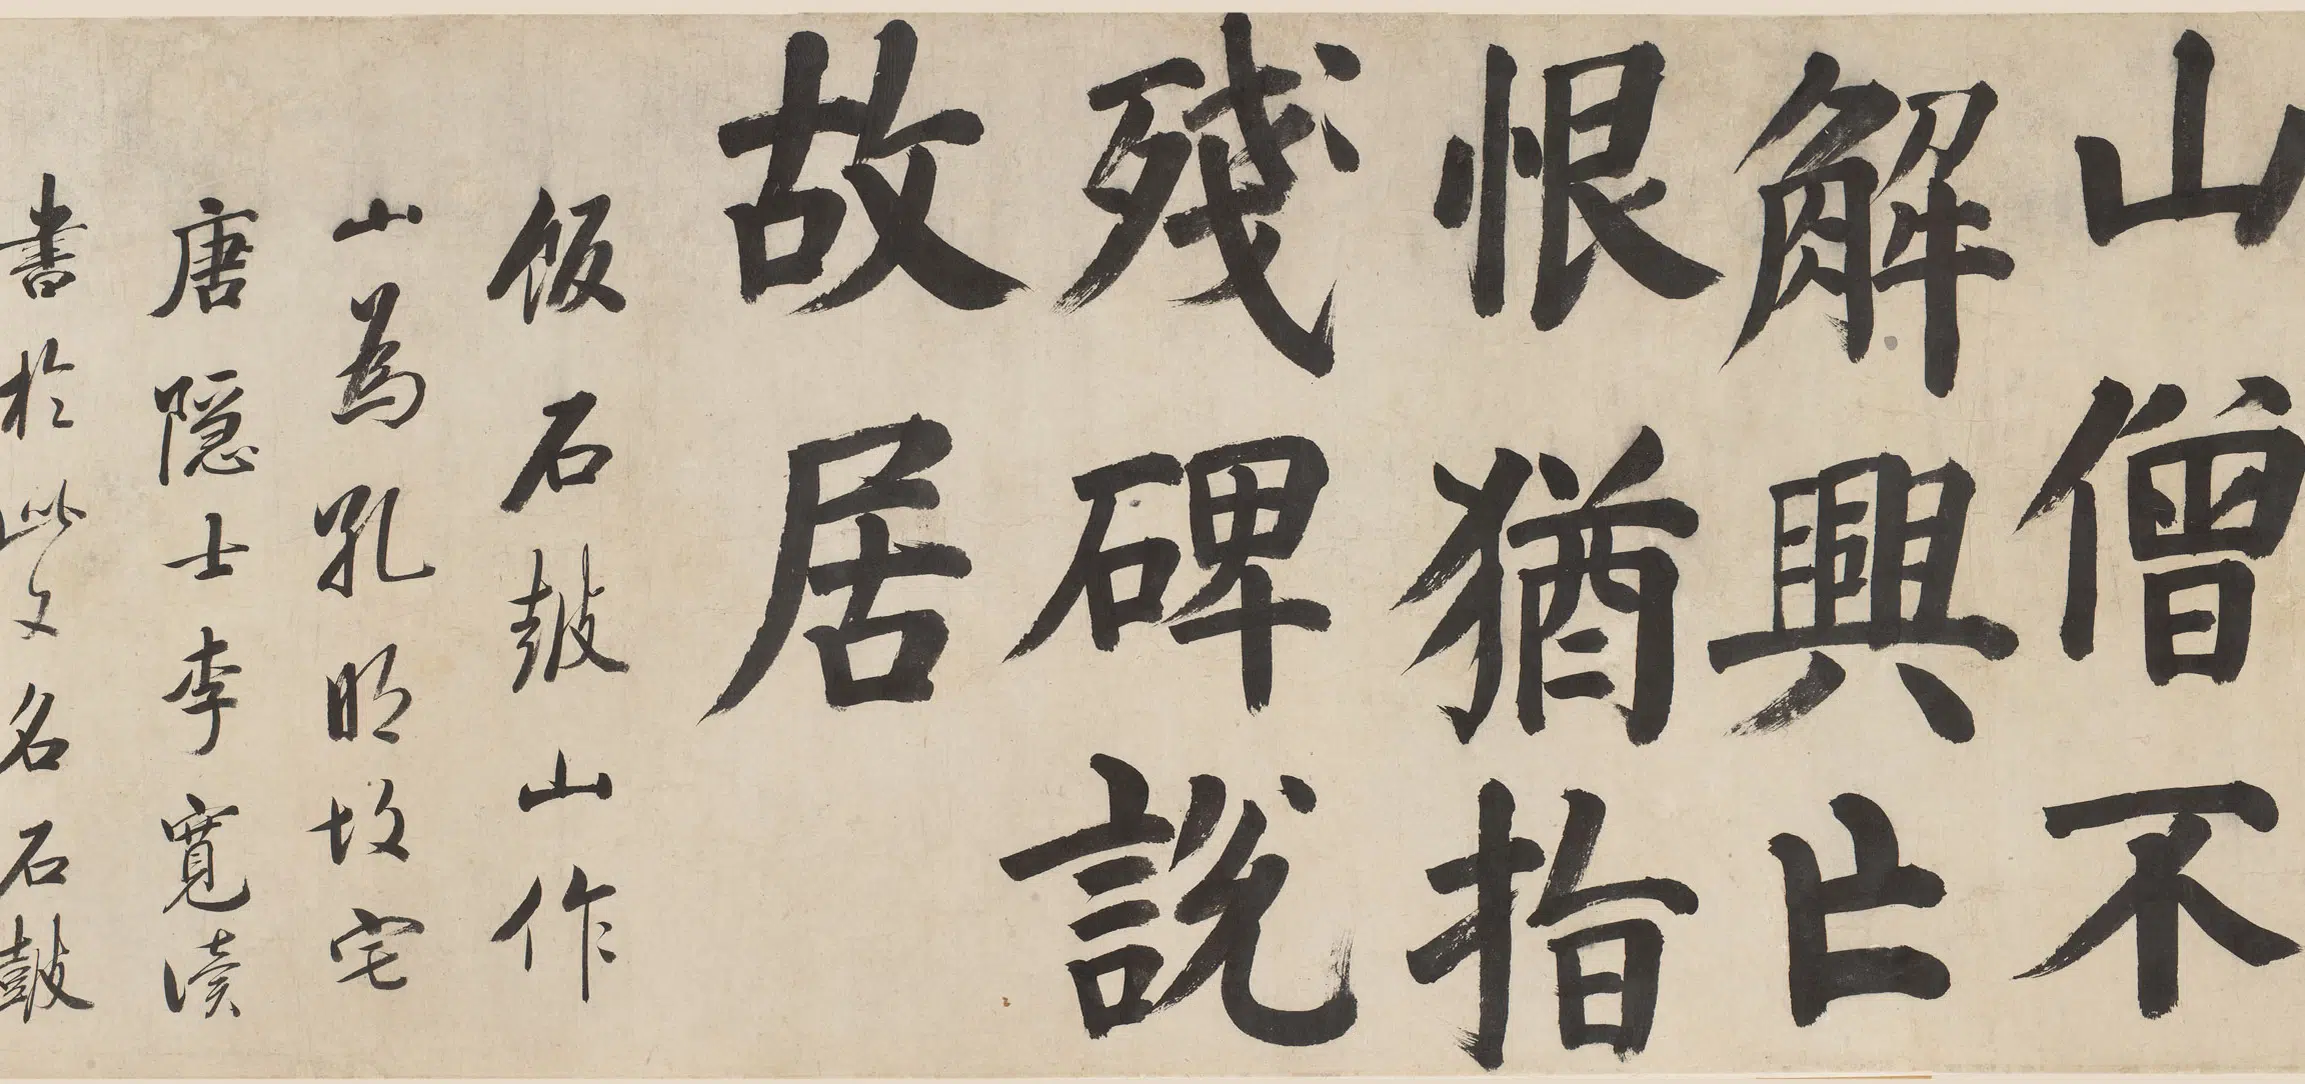 山僧不
解興亡
恨猶指
殘碑說
故居
飯石鼓山作
山為孔明故宅
唐隱士李寬讀
書於此又名石鼓